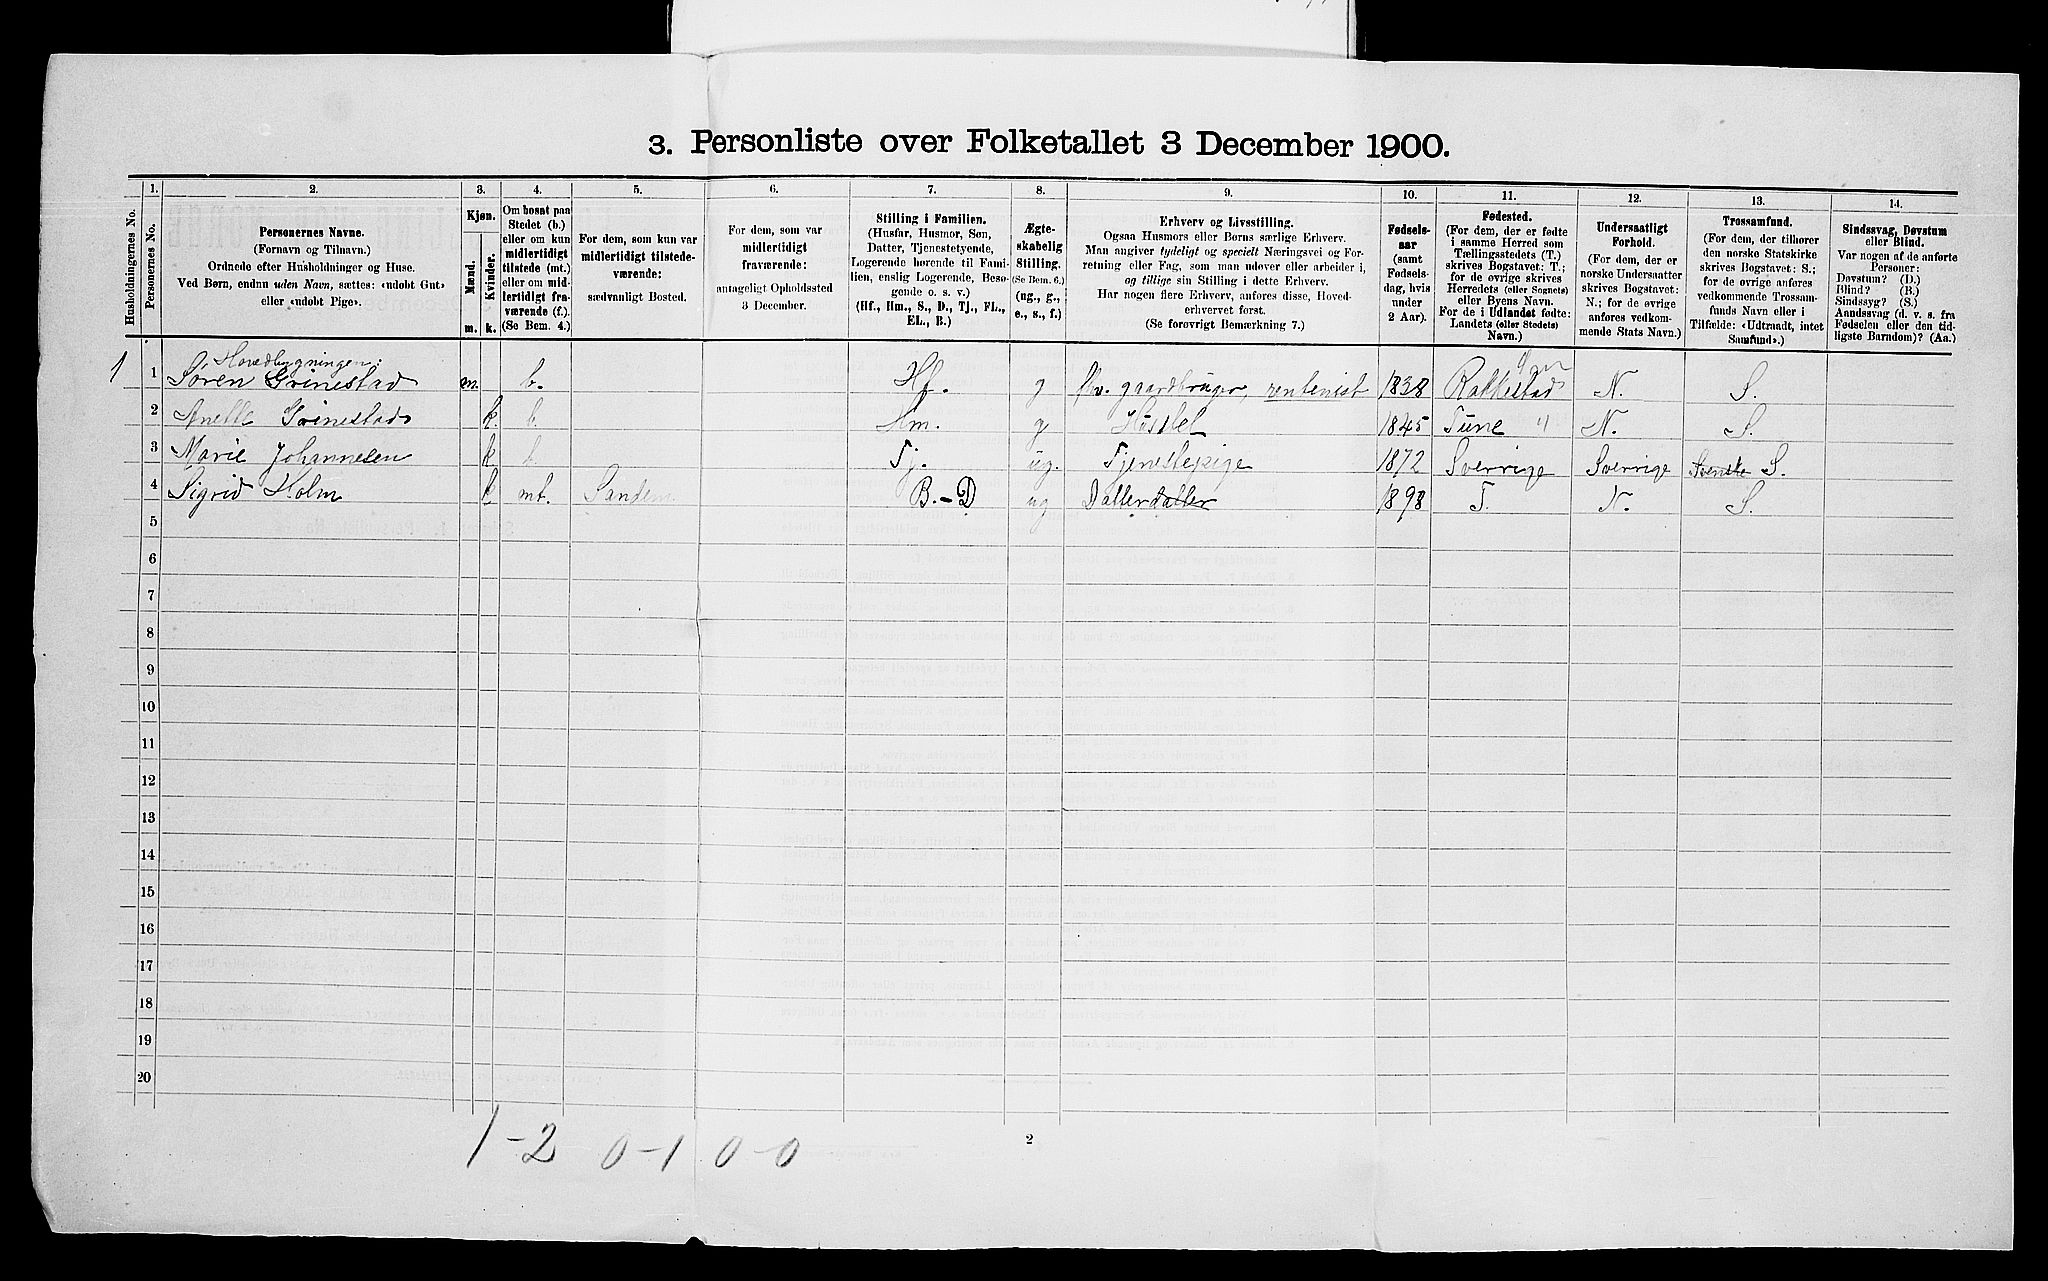 3. Personliste over Folketallet 3 December 1900.
1. 2. 3. 4. 5. 6. 7. 8. 9. 10. 11. 12. 13. 14.
Husholdningernes No.
Personernes No.
Personernes Navne.
(Fornavn og Tilnavn.)
Ordnede efter Husholdninger og Huse.
Ved Børn, endnu uden Navn, sættes: «udøbt Gut»
eller «udøbt Pige».
Kjøn.
Mænd.
Kvinder.
m. k.
Om bosat paa
Stedet (b.)
eller om kun
midlertidigt
tilstede (mt.)
eller om mid-
lertidigt fra-
værende (f.).
(Se Bem. 4.)
For dem, som kun var
midlertidigt tilstede-
værende:
sædvanligt Bosted.
For dem, som var
midlertidigt
fraværende:
antageligt Opholdssted
3 December.
Stilling i Familien.
(Husfar, Husmor, Søn,
Datter, Tjenestetyende,
Logerende hørende til Fami-
lien, enslig Logerende, Besø-
gende o. s. v.)
(Hf., Hm., S., D., Tj., FL.,
EL., B.)
Ægte-
skabelig
Stilling.
(Se Bem. 6.)
(ug., g.,
e., s., f.)
Erhverv og Livsstilling.
Ogsaa Husmors eller Børns særlige Erhverv.
Man angiver tydeligt og specielt Næringsvei og For-
retning eller Fag, som man udøver eller arbeider i,
og tillige sin Stilling i dette Erhverv.
Har nogen flere Erhverv, anføres disse, Hoved-
erhvervet først.
(Se forøvrigt Bemærkning 7.)
Fødsels-
aar
(samt
Fødsels-
dag, hvis
under
2 Aar).
Fødested.
(For dem, der er fødte
i samme Herred som
Tællingsstedets (T.)
skrives Bogstavet: T.;
for de øvrige skrives
Herredets (eller Sognets)
eller Byens Navn.
For de i Udlandet fødte:
Landets (eller Stedets)
Navn.)
Undersaatligt
Forhold.
(For dem, der er
norske Undersaatter
skrives Bogstavet:
N.; for de øvrige
anføres vedkom-
mende Stats Navn.)
Trossamfund.
(For dem, der tilhører
den norske Statskirke
skrives Bogstavet: S.;
for de øvrige anføres
vedkommende Trossam-
funds Navn eller i
Tilfælde: «Udtraadt, intet
Samfund».)
Sindssvag, Døvstum
eller Blind.
Var nogen af de anførte
Personer:
Døvstum? (D.)
Blind? (B.)
Sindssyg? (S.)
Aandssvag (d. v. s. fra
Fødselen eller den tid-
ligste Barndom)? (Aa.)
Hovedbygningen:
1 1 Søren Grinestad m. b. Hf. g fhv. gaardbruger, rentenist 1838 Rakkestad N. S.
2 Anette Grinestad k. b. Hm. g Husstel 1845 Tune " N. S.
3 Marie Johannesen k b Tj. ug. Tjenestepige 1872 Sverrige Sverrige Svenske S.
4 Sigrid Holm k mt. Sandem B.-D ug Datterdatter 1898 T. N. S.
5
6
7
8
9
10
11
12
13
14
15
16
17
18
19
20
1-2 0-1 0-0
2